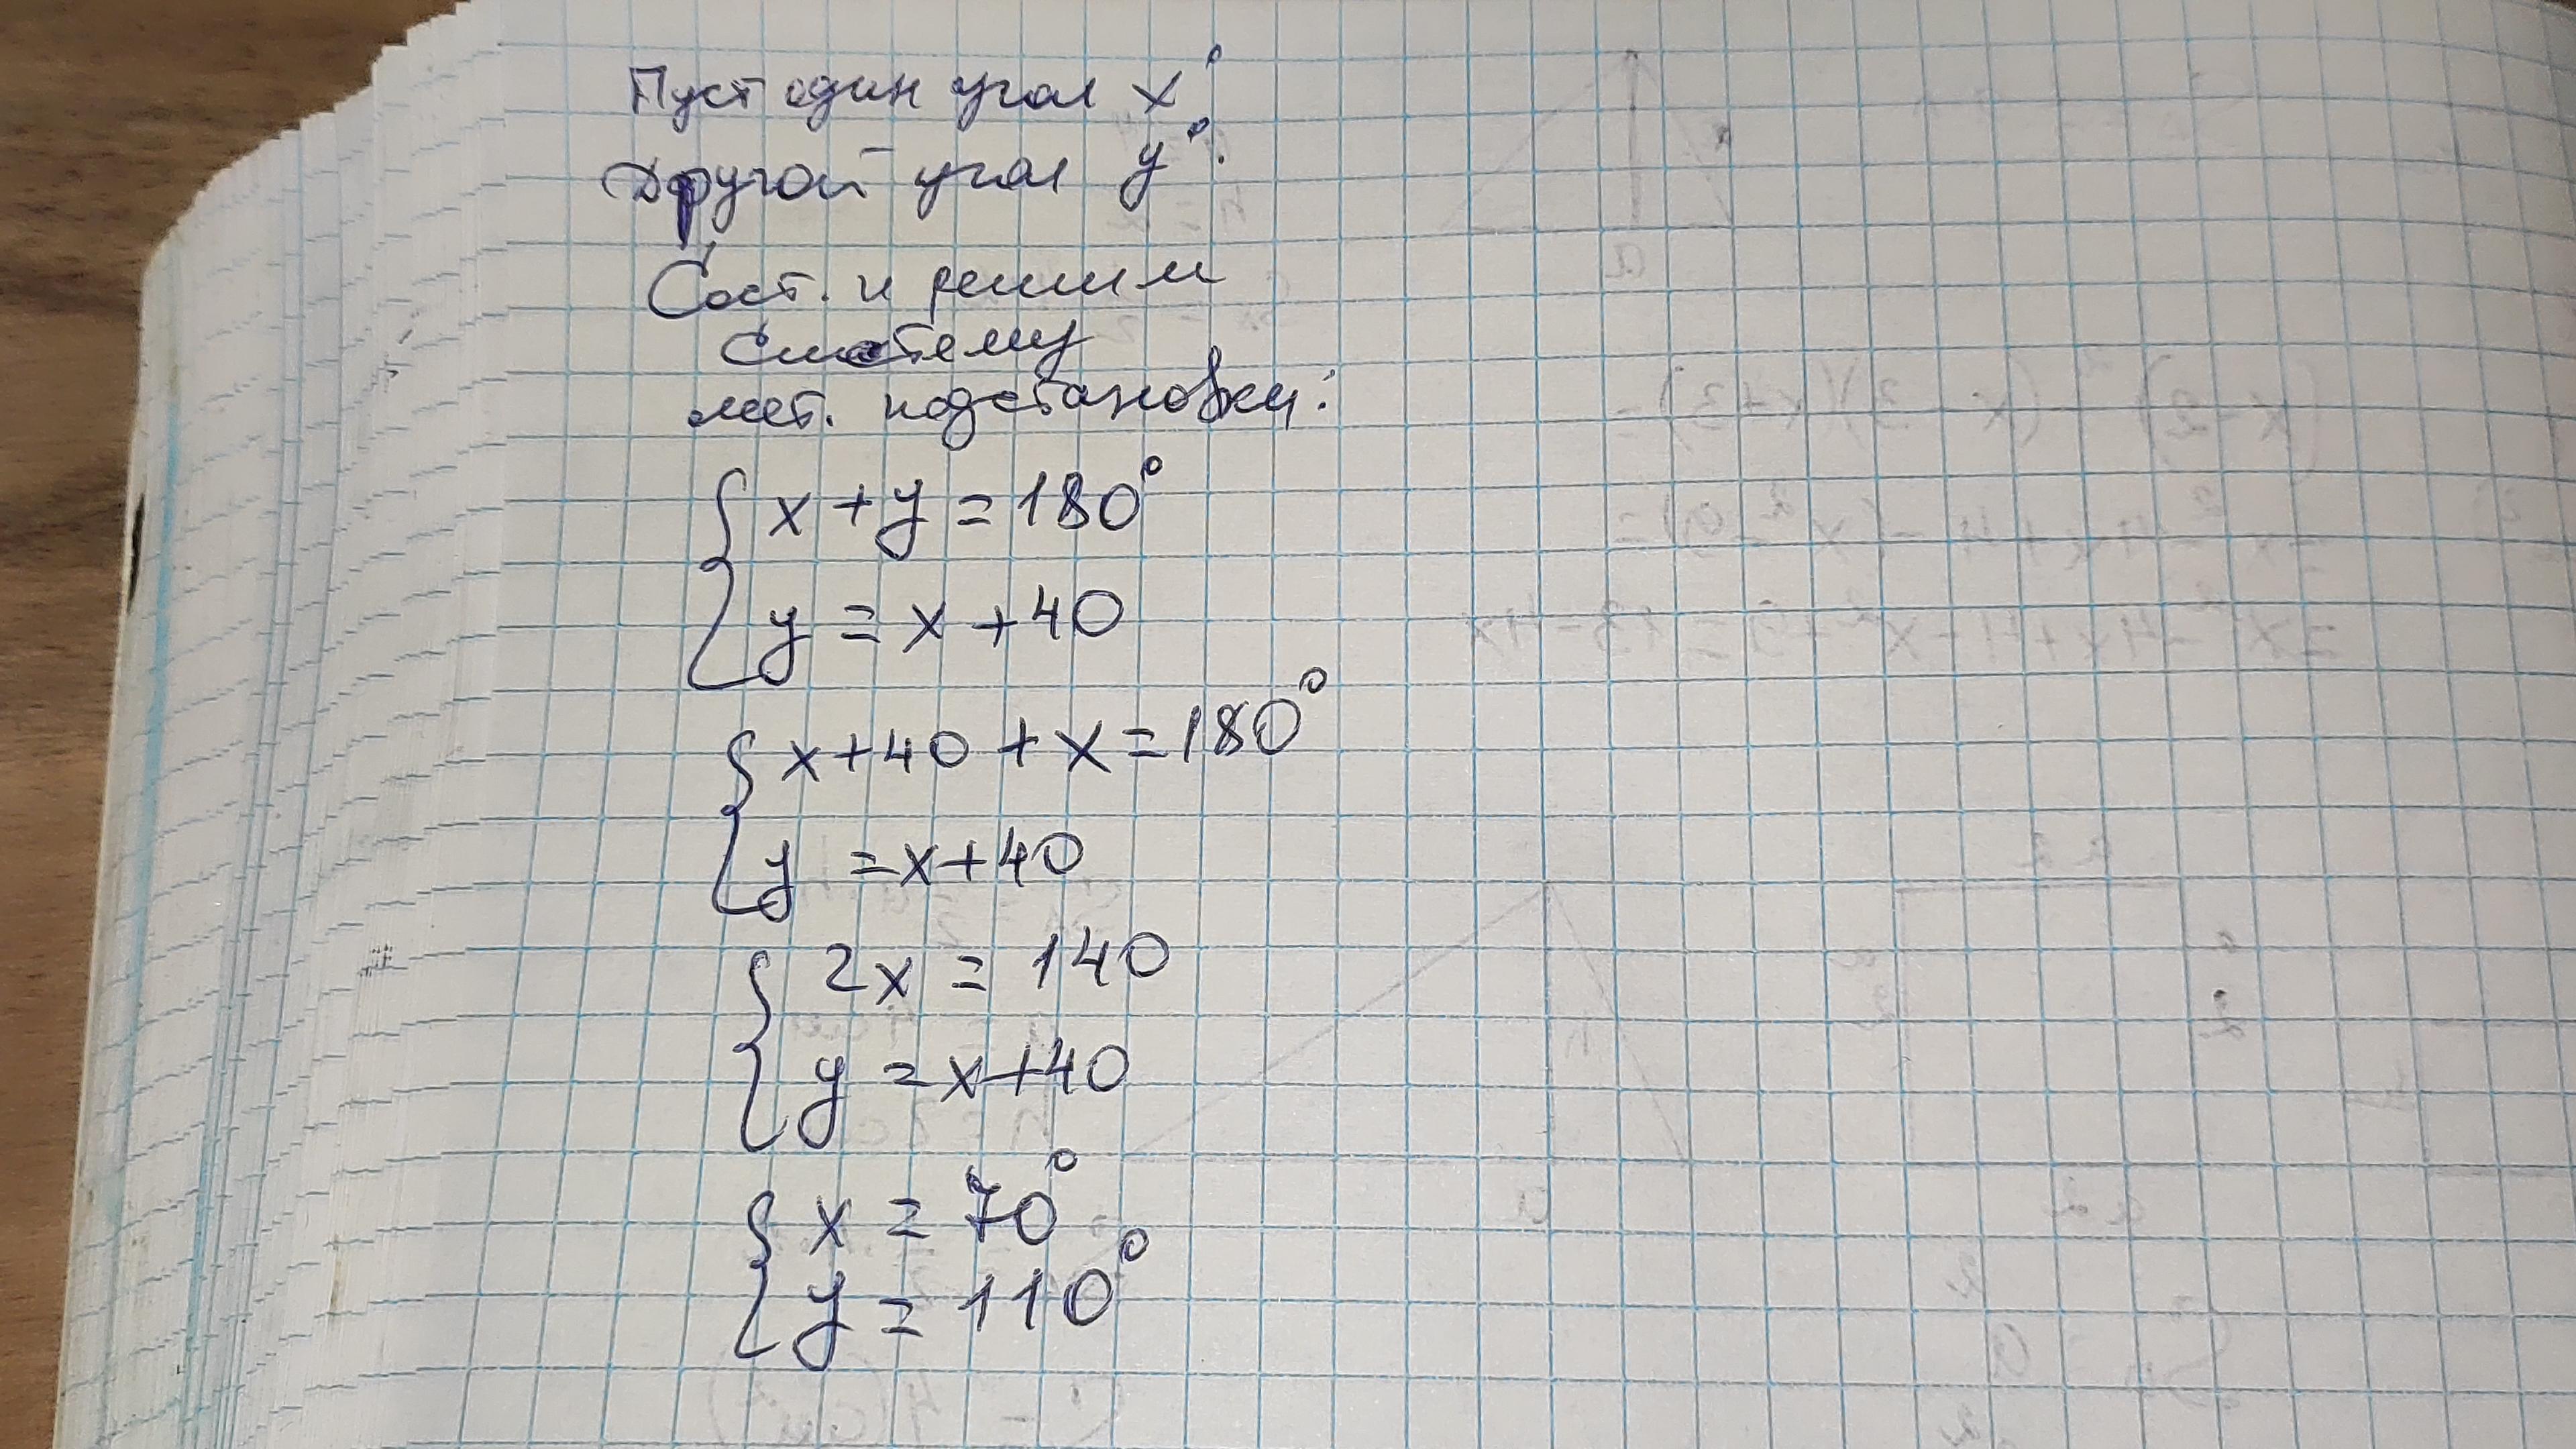 Пуст один угол x°
Другой угол y°.
Сост. и решим
систему
мет. подстановки:
x + y = 180°
y = x + 40
x + 40 + x = 180°
y = x + 40
2x = 140
y = x + 40
x = 70°
y = 110°